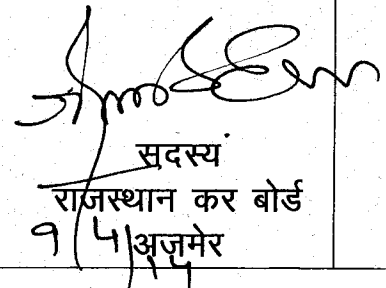 सदस्य
राजस्थान कर बोर्ड
अजमेर
9/4/14